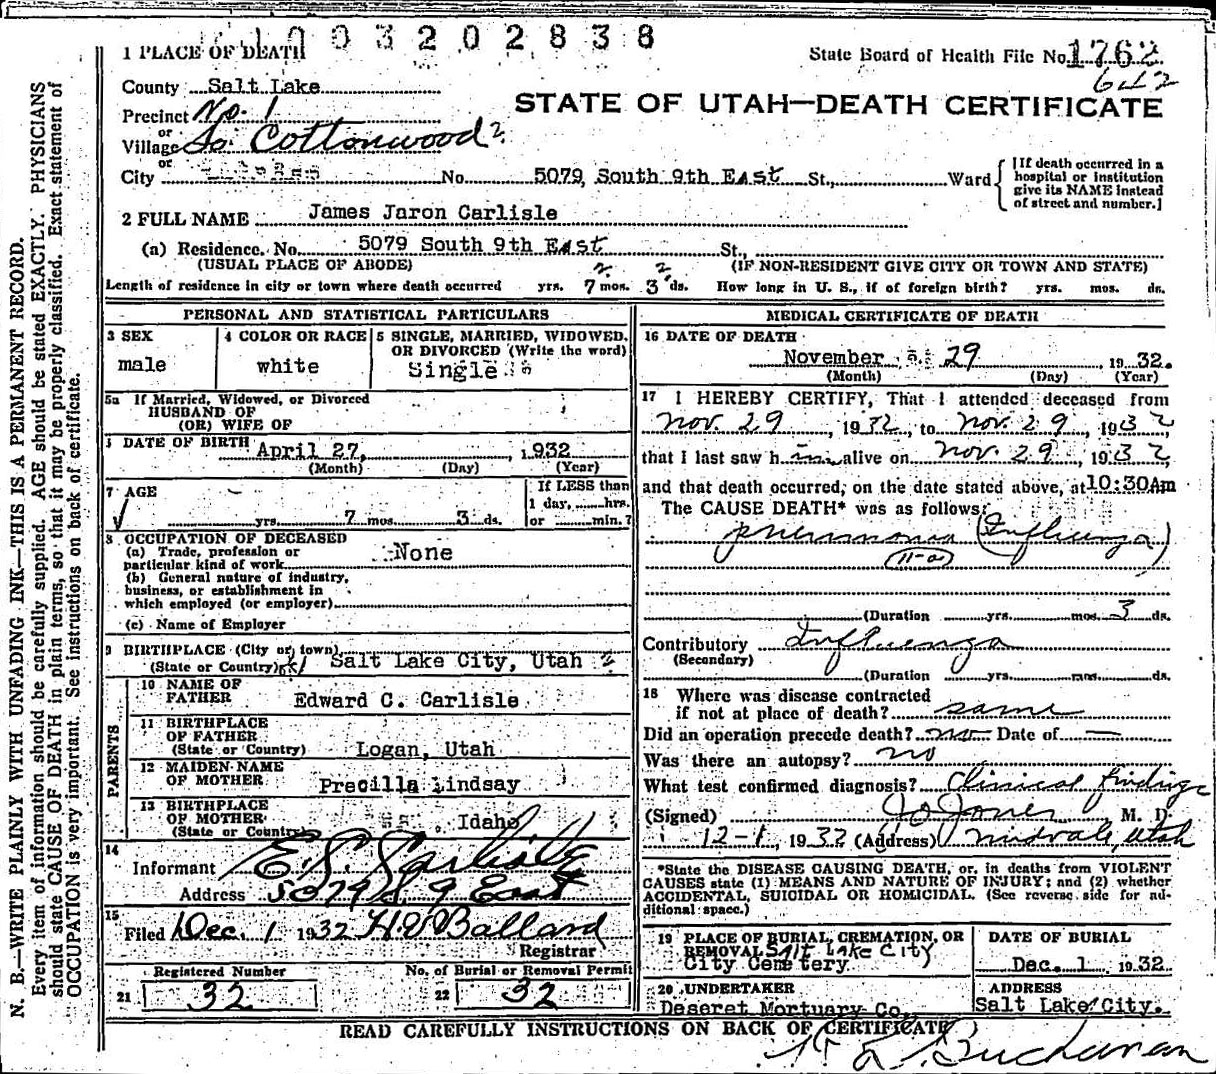 1 0 0 3 2 0 2 8 3 8
1 PLACE OF DEATH
State Board of Health File No. 1762
642
STATE OF UTAH—DEATH CERTIFICATE
County Salt Lake
Precinct No. 1
or
Village So. Cottonwood 2
or
City No. 5079 South 9th East St., Ward
[If death occurred in a hospital or institution give its NAME instead of street and number.]
2 FULL NAME James Jaron Carlisle
(a) Residence. No. 5079 South 9th East St.,
(USUAL PLACE OF ABODE) (IF NON-RESIDENT GIVE CITY OR TOWN AND STATE)
Length of residence in city or town where death occurred yrs. 7 mos. 3 ds. How long in U. S., if of foreign birth? yrs. mos. ds.
PERSONAL AND STATISTICAL PARTICULARS
3 SEX
male
4 COLOR OR RACE
white
5 SINGLE, MARRIED, WIDOWED,
OR DIVORCED (Write the word)
Single
5a If Married, Widowed, or Divorced
HUSBAND OF
(OR) WIFE OF
DATE OF BIRTH April 27, 1932
(Month) (Day) (Year)
7 AGE
yrs. 7 mos. 3 ds.
If LESS than
1 day, hrs.
or min.?
8 OCCUPATION OF DECEASED
(a) Trade, profession or
particular kind of work None
(b) General nature of industry,
business, or establishment in
which employed (or employer)
(c) Name of Employer
9 BIRTHPLACE (City or town)
(State or Country) Salt Lake City, Utah 2
PARENTS
10 NAME OF
FATHER Edward C. Carlisle
11 BIRTHPLACE
OF FATHER
(State or Country) Logan, Utah
12 MAIDEN NAME
OF MOTHER Precilla Lindsay
13 BIRTHPLACE
OF MOTHER
(State or Country) Idaho
14
Informant E. C. Carlisle
Address 5079 S 9 East
15
Filed Dec. 1 1932 H. E. Ballard
Registrar
Registered Number
21 32
No. of Burial or Removal Permit
22 32
MEDICAL CERTIFICATE OF DEATH
16 DATE OF DEATH
November 29 1932.
(Month) (Day) (Year)
17 I HEREBY CERTIFY, That I attended deceased from
Nov. 29, 1932, to Nov. 29, 1932
that I last saw him alive on Nov. 29, 1932
and that death occurred, on the date stated above, at 10:30Am
The CAUSE DEATH* was as follows:
pneumonia (Influenza)
11-a
(Duration yrs. mos. 3 ds.
Contributory Influenza
(Secondary)
(Duration yrs. mos. ds.
18 Where was disease contracted
if not at place of death? same
Did an operation precede death? no Date of —
Was there an autopsy? no
What test confirmed diagnosis? Clinical findings
(Signed) Jo Jones M. D.
12-1, 1932 (Address) Midvale, Utah
*State the DISEASE CAUSING DEATH, or, in deaths from VIOLENT
CAUSES state (1) MEANS AND NATURE OF INJURY; and (2) whether
ACCIDENTAL, SUICIDAL OR HOMICIDAL. (See reverse side for ad-
ditional space.)
19 PLACE OF BURIAL, CREMATION, OR
REMOVAL Salt Lake City
City Cemetery
DATE OF BURIAL
Dec. 1 1932
20 UNDERTAKER
Deseret Mortuary Co.
ADDRESS
Salt Lake City.
READ CAREFULLY INSTRUCTIONS ON BACK OF CERTIFICATE
Buchanan
N. B.—WRITE PLAINLY WITH UNFADING INK—THIS IS A PERMANENT RECORD.
Every item of information should be carefully supplied. AGE should be stated EXACTLY. PHYSICIANS
should state CAUSE OF DEATH in plain terms, so that it may be properly classified. Exact statement of
OCCUPATION is very important. See instructions on back of certificate.